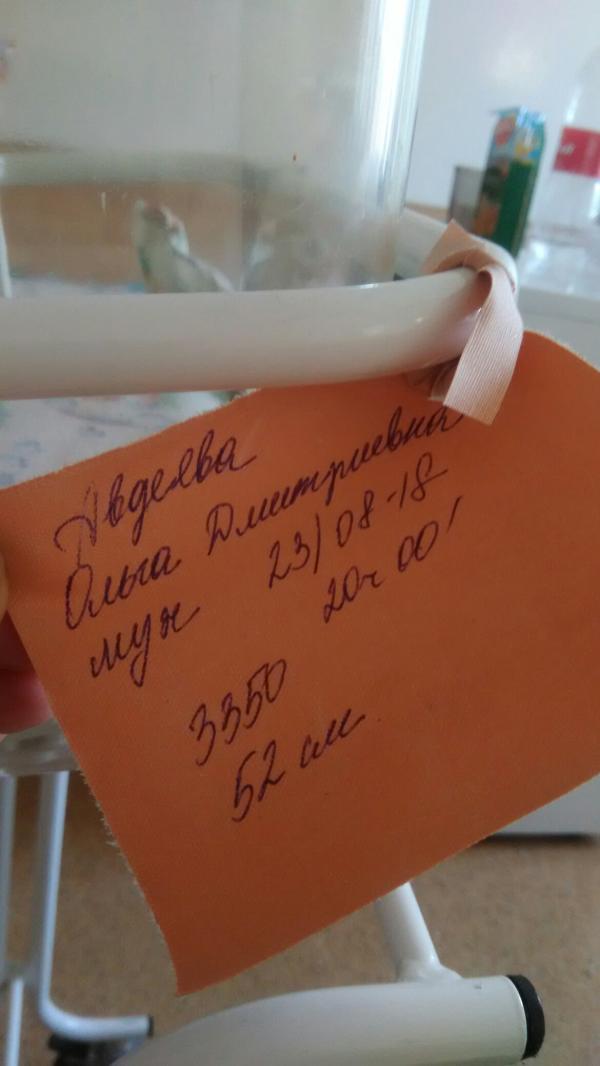 Авдеева
Ольга Дмитриевна
муж 23/08-18
20ч 00'
3350
52 см